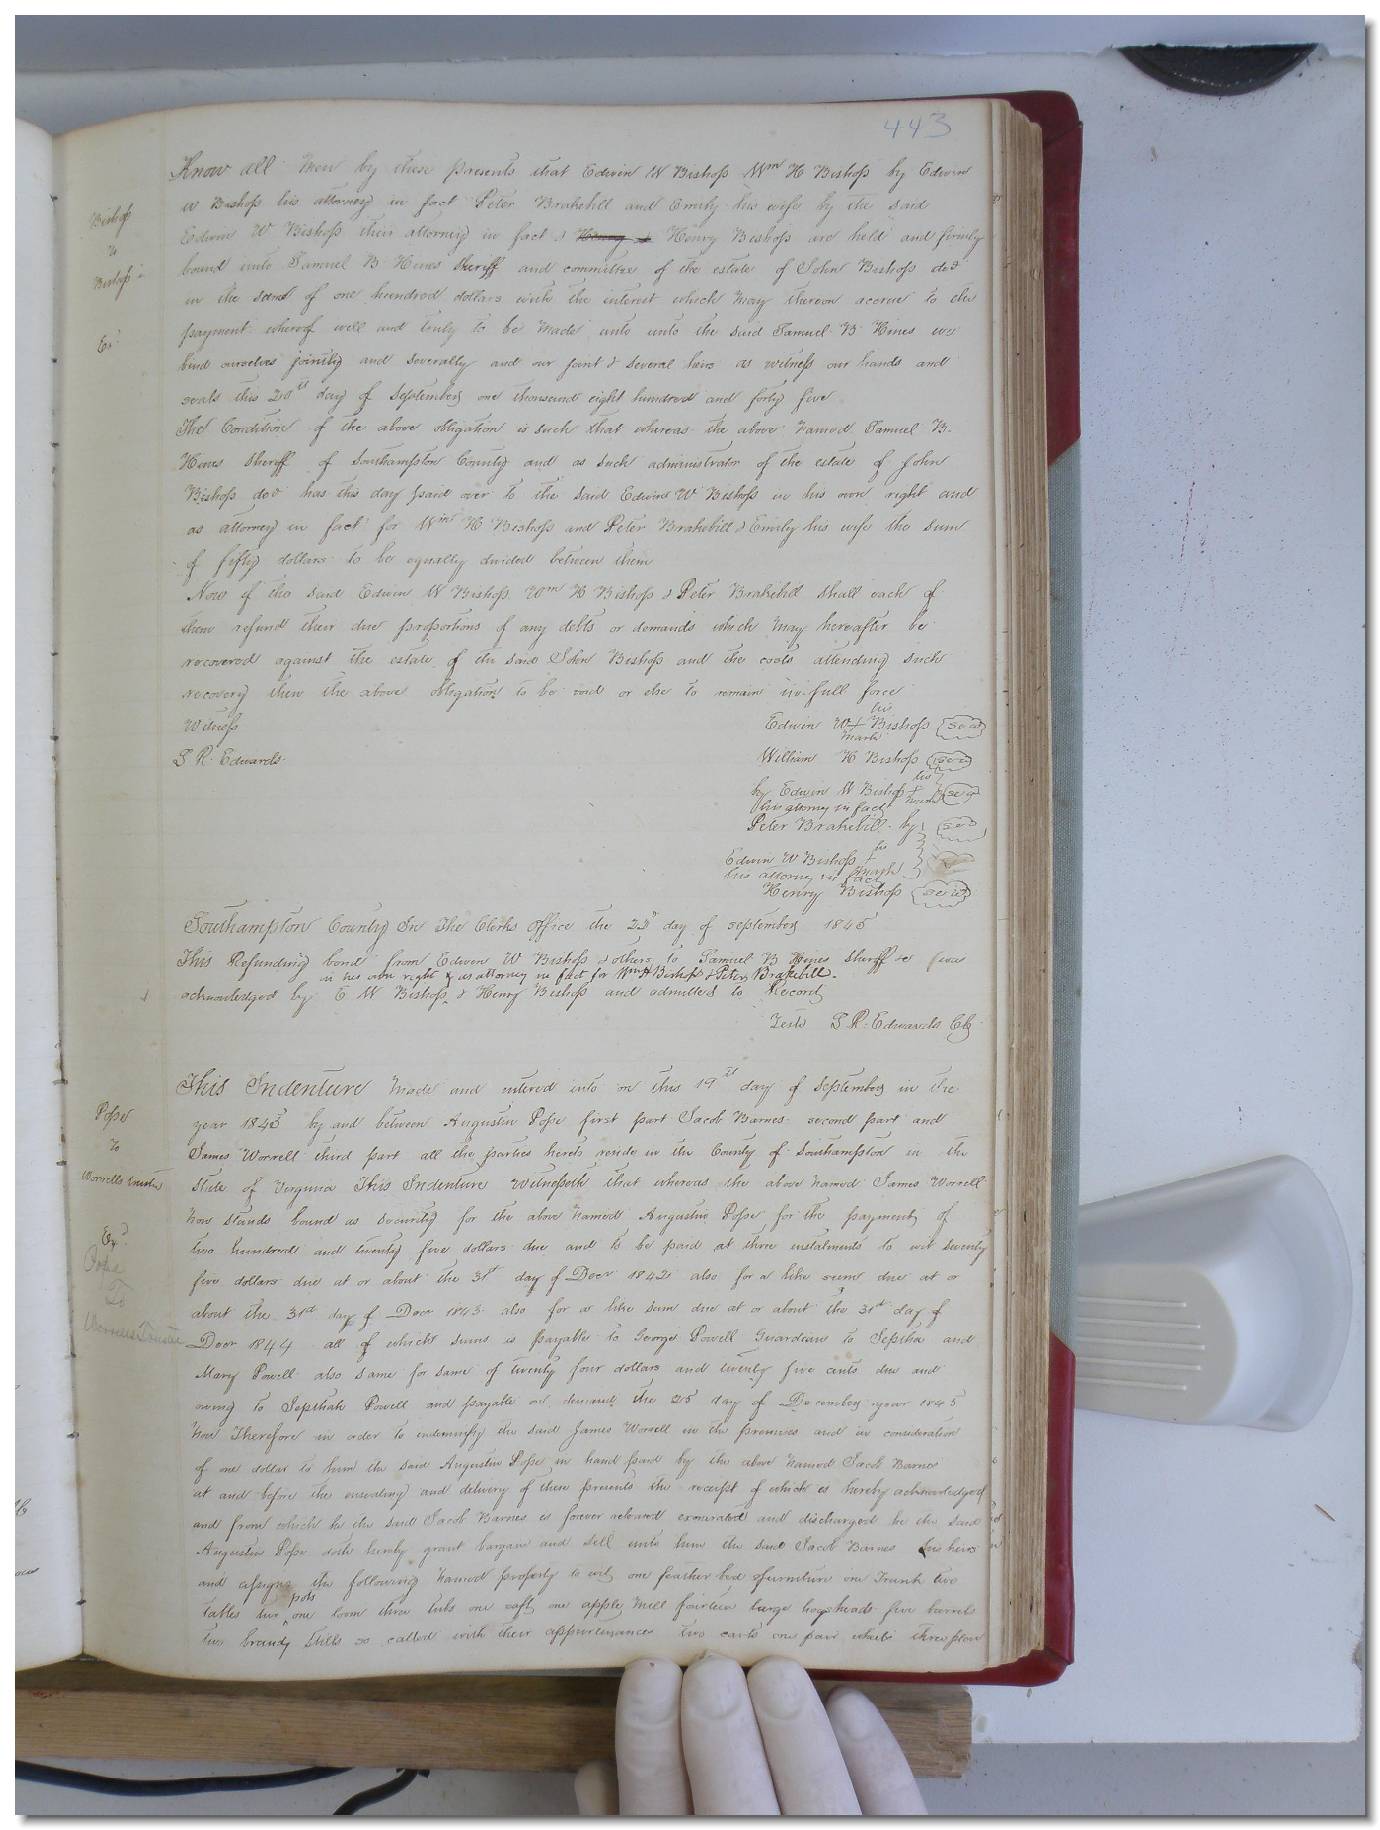 443
Know all Men by these presents that Edwin W Bishop Wm H Bishop by Edwin
W Bishop his attorney in fact Peter Brakebill and Emily his wife by the said
Edwin W Bishop their attorney in fact & Henry & Henry Bishop are held and firmly
bound unto Samuel B Hines Sheriff and committee of the estate of John Bishop decd
in the sum of one hundred dollars with the interest which may thereon accrue to the
payment whereof well and truly to be made unto unto the said Samuel B Hines we
bind ourselves jointly and severally and our joint & several heirs as witness our hands and
seals this day of September one thousand eight hundred and forty five
The Condition of the above obligation is such that whereas the above named Samuel B.
Hines Sheriff of Southampton County and as such administrator of the estate of John
Bishop decd has this day paid over to the said Edwin W Bishop in his own right and
as attorney in fact for Wm H Bishop and Peter Brakebill & Emily his wife the sum
of fifty dollars to be equally divided between them
Now if the said Edwin W Bishop Wm H Bishop & Peter Brakebill shall each of
them refund their due proportions of any debts or demands which may hereafter be
recovered against the estate of the said John Bishop and the costs attending such
recovery then the above obligation to be void or else to remain in full force
Witness
L R. Edwards
Edwin W + Bishop seal
his
mark
William H Bishop seal
by Edwin W Bishop + seal
his
mark
his attorney in fact
Peter Brakebill by seal
Edwin W Bishop +
his
mark
his attorney in fact
Henry Bishop seal
Southampton County In The Clerks Office the day of september 1845
This Refunding bond from Edwin W Bishop & others to Samuel B Hines Sheriff &c was
in his own right & as attorney in fact for Wm H Bishop & Peter Brakebill.
acknowledged by E W Bishop & Henry Bishop and admitted to Record
Teste L R. Edwards Clk
Bishop
to
Bishop
Ex.
This Indenture Made and entered into on this 19th day of September in the
year 1843 by and between Augustin Pope first part Jacob Barnes second part and
James Worrell third part all the parties hereto reside in the County of Southampton in the
State of Virginia This Indenture Witnesseth that whereas the above named James Worrell
now stands bound as security for the above named Augustin Pope for the payment of
two hundred and twenty five dollars due and to be paid at three instalments to wit seventy
five dollars due at or about the 31st day of Decr 1842 also for a like sum due at or
about the 31st day of Decr 1843 also for a like sum due at or about the 31st day of
Decr 1844 all of which sums is payable to George Powell Guardian to Septha and
Mary Powell also same for same of twenty four dollars and twenty five cents due and
owing to Septhah Powell and payable on demand the 25 day of December year
Now Therefore in order to indemnify the said James Worrell in the premises and in consideration
of one dollar to him the said Augustin Pope in hand paid by the above named Jacob Barnes
at and before the ensealing and delivery of these presents the receipt of which is hereby acknowledged
and from which he the said Jacob Barnes is forever released exonerated and discharged he the said
Augustin Pope doth hereby grant bargain and sell unto him the said Jacob Barnes his heirs
and assigns the following named property to wit one feather bed & furniture one Trunk two
pots
tables two one loom three tubs one one apple Mill fourteen large hogsheads five barrels
two brandy Stills so called with their appurtenances two carts one pair wheels three plow
Pope
to
Worrells trustee
Ex.
Pope
To
Worrells Trustee